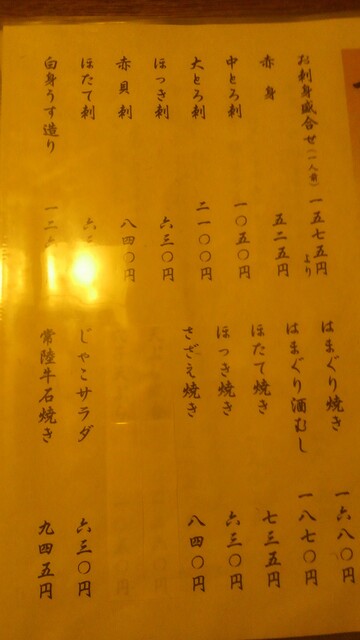 お刺身盛合せ(一人前) 一五七五円より
赤身 五二五円
中とろ刺 一〇五〇円
大とろ刺 二一〇〇円
ほっき刺 六三〇円
赤貝刺 八四〇円
ほたて刺 六三
白身うす造り 一二
はまぐり焼き 一六八〇円
はまぐり酒むし 一八七〇円
ほたて焼き 七三五円
ほっき焼き 六三〇円
さざえ焼き 八四〇円
じゃこサラダ 六三〇円
常陸牛石焼き 九四五円